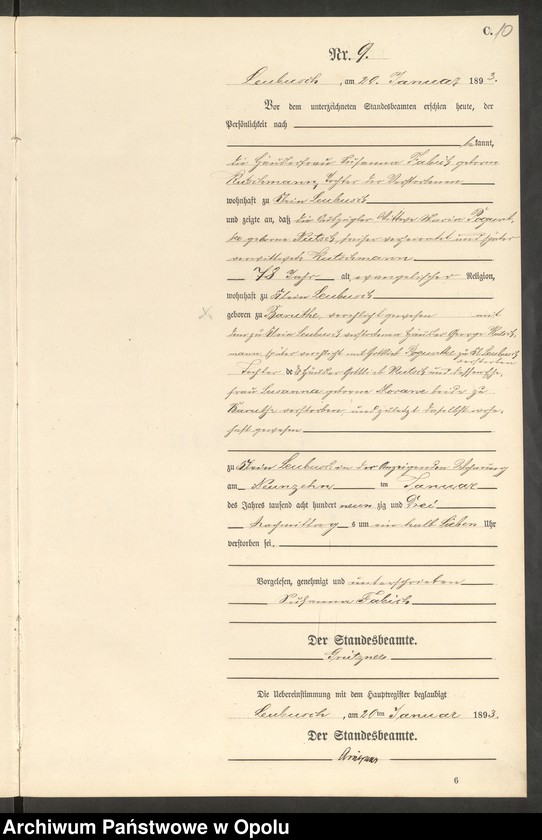 C. 10
Nr. 9.
Leubusch, am 20. Januar 1893.
Vor dem unterzeichneten Standesbeamten erschien heute, der
Persönlichkeit nach
bekannt,
die Häuslerfrau Susanna Fabisch geborene
Kutschmann, Tochter der Verstorbenen
wohnhaft zu Klein Leubusch
und zeigte an, daß die Wittwe Maria
geborene früher verheirathet und später
verwittwete Kutschmann
73 Jahr alt, evangelischer Religion,
wohnhaft zu Klein Leubusch
geboren zu Karuthe, verehelicht gewesen mit
dem zu Klein Leubusch verstorbenen Häusler George
mann später verehelicht mit Gottlieb zu Kl. Leubusch
verstorben
Tochter des Häusler Gottlieb und dessen Ehe-
frau Susanna geborene beide zu
Karuthe verstorben und zuletzt daselbst wohn-
haft gewesen
zu Klein Leubusch in der Anzeigenden Behausung
am Neunzehn ten Januar
des Jahres tausend acht hundert neun zig und Drei
Nachmittag s um ein halb Sieben Uhr
verstorben sei.
Vorgelesen, genehmigt und unterschrieben
Susanna Fabisch
Der Standesbeamte.
Die Uebereinstimmung mit dem Hauptregister beglaubigt
Leubusch, am 20ten Januar 1893.
Der Standesbeamte.
6
Archiwum Państwowe w Opolu